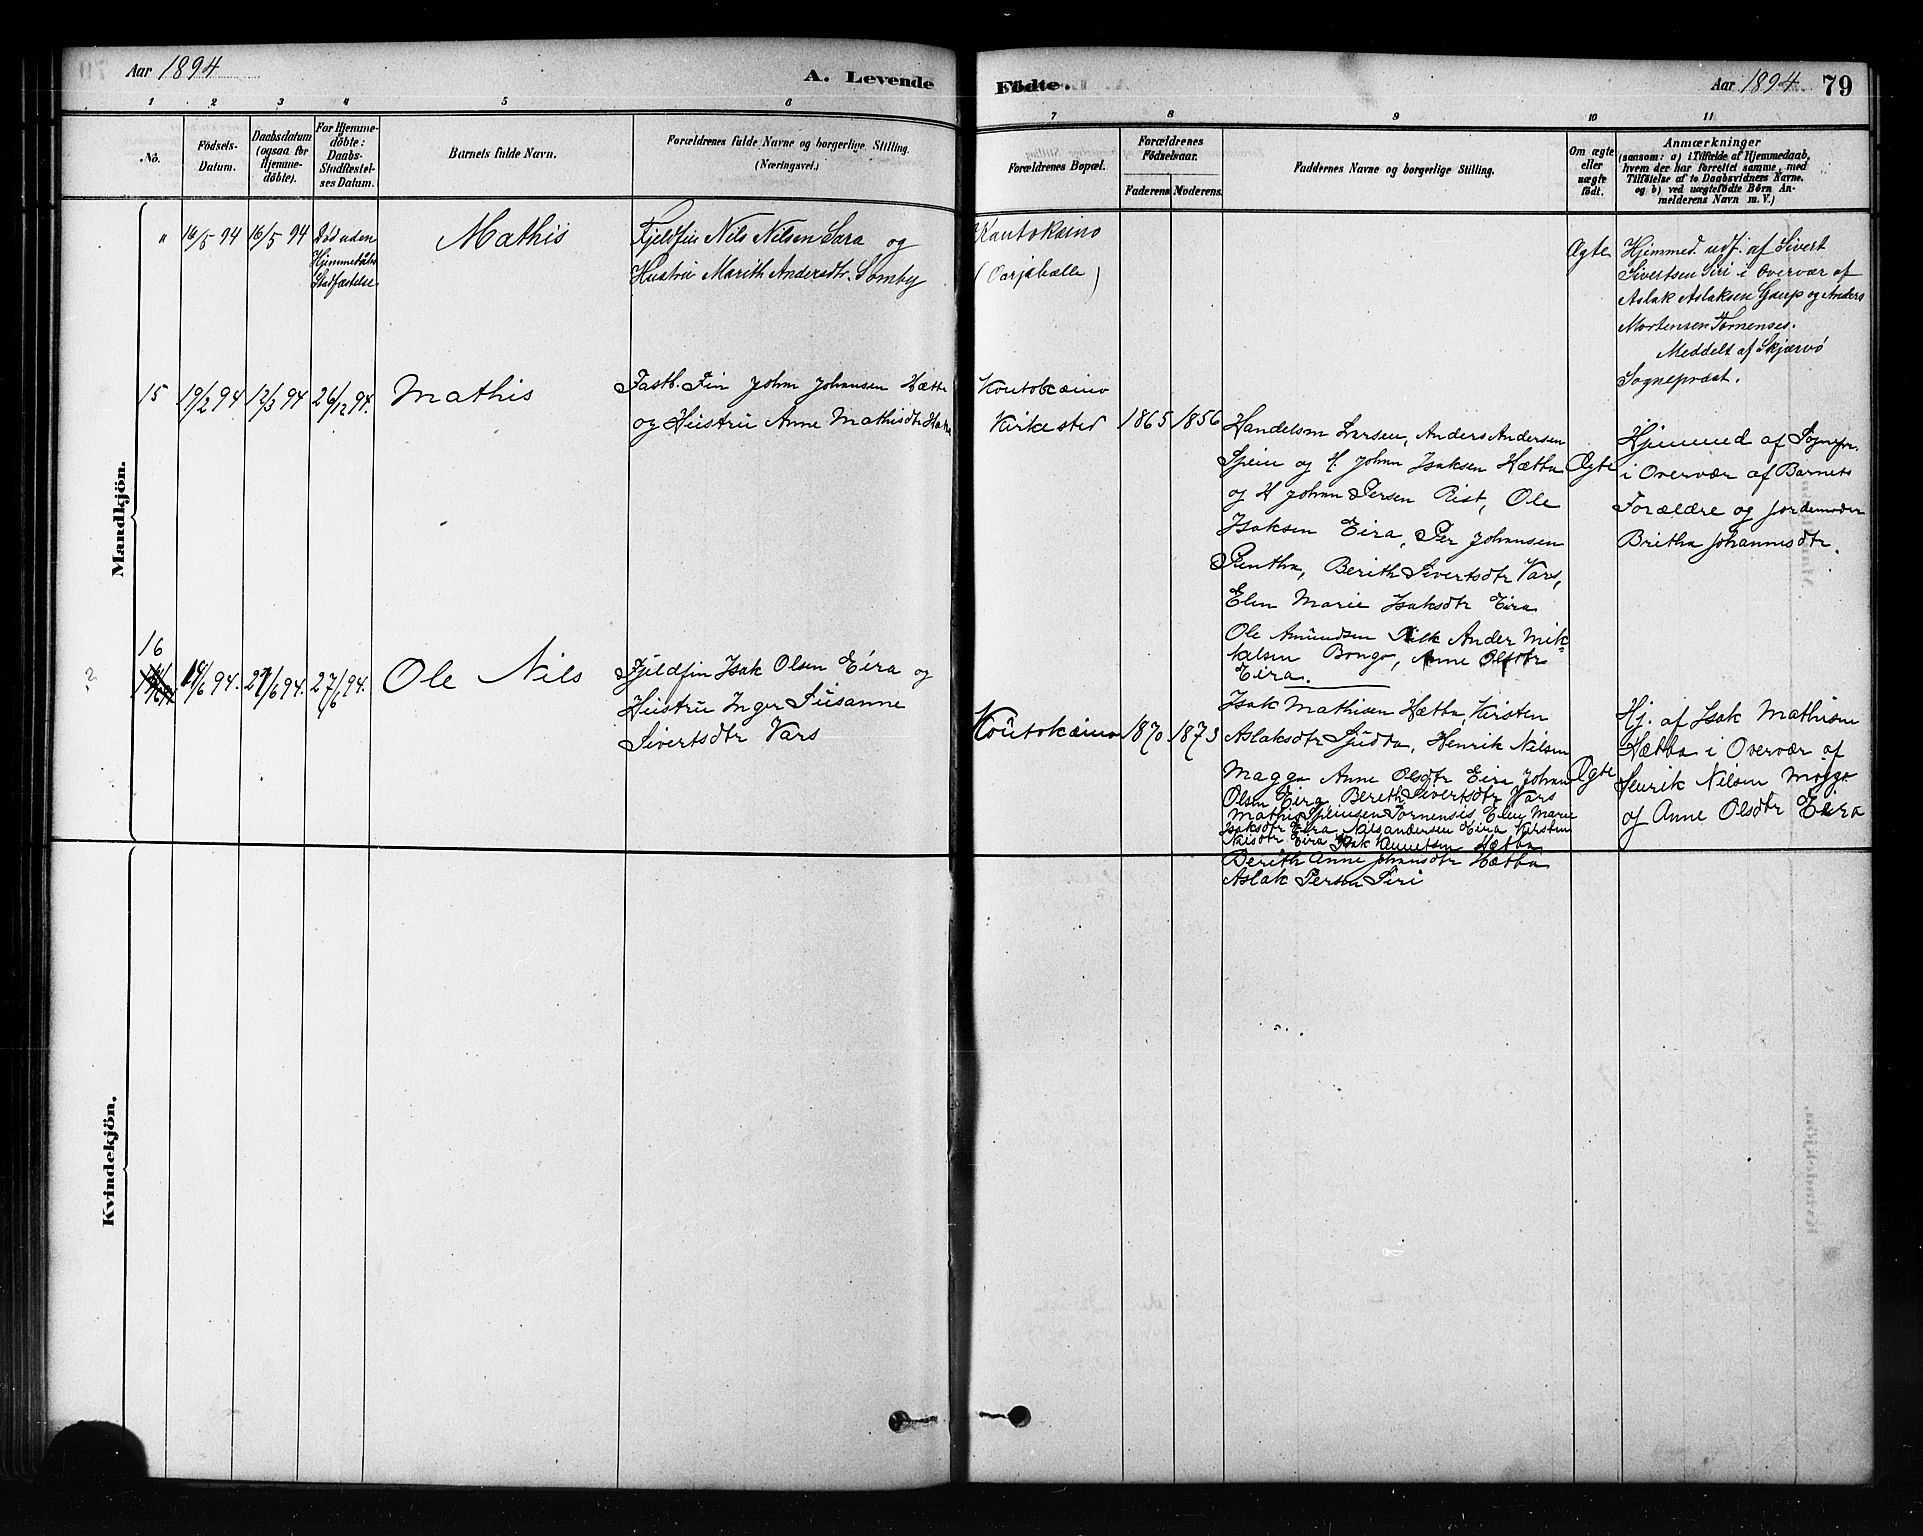 Aar 1894
A. Levende
Födte.
Aar 1894
79
1 2 3 4 5 6 7 8 9 10 11
No.
Födsels-
Datum.
Daabsdatum
(ogsaa for
Hjemme-
döbte).
For Hjemme-
döbte:
Daabs-
Stadfæstel-
ses Datum.
Barnets fulde Navn.
Forældrenes fulde Navne og borgerlige Stilling.
(Næringsvei.)
Forældrenes Bopæl.
Forældrenes
Födselsaar.
Faderens. Moderens.
Faddernes Navne og borgerlige Stilling.
Om ægte
eller
uægte
födt.
Anmærkninger
(saasom: a) i Tilfælde af Hjemmedaab,
hvem der har forrettet samme, med
Tilföielse af to Daabsvidners Navne.
og b) ved uægtefödte Börn An-
melderens Navn m. V.)
Mandkjön.
"
16/5 94
16/5 94
Död uden
Hjemmedåbs
Stadfæstelse
Mathis
Fjeldfin Nils Nilsen Sara og
Hustru Marith Andersdtr. Somby
Kautokeino
Ægte
Hjemmed. udf. af Sivert
Sivertsen Siri i Overvær af
Aslak Aslaksen Gaup og Anders
Mortensen Tornenses.
Meddelt af Skjærvö
Sognepræst.
15
19/2 94
12/3 94
26/12 94.
Mathis
Fastb. Fin Johan Johansen Hætta
og Hustru Anne Mathisdtr Hætta
Koutokæino
Kirkested
1865
1856
Handelsm Larsen, Anders Andersen
Spein og H. Johan Isaksen Hætta
og H Johan Persen Rist, Ole
Isaksen Eira, Per Johansen
Pentha, Berith Sivertsdtr Vars,
Elen Marie Isaksdtr Eira
Ole Amundsen Anders Mik-
kelsen Bongo, Anne Olsdtr
Eira.
Ægte
Hjemmed af Sognepr.
i Overvær af Barnets
Forældre og Jordemoder
Britha Johannesdtr.
?
16
19/6 94.
27/6 94.
27/6 94.
Ole Nils
Fjeldfin Isak Olsen Eira og
Hustru Inger Susanne
Sivertsdtr Vars
Koutokæino
1870
1873
Isak Mathisen Hætta, Kirsten
Aslaksdtr Juuta, Henrik Nilsen
Magga Anne Olsdtr Eira Johan
Olsen Eira Bereth Sivertsdtr Vars
Mathis Speinsen Tornensis, Elen Marie
Isaksdtr Eira Nils Andersen Eira Kirsten
Nilsdtr Eira Isak Hætta
Berith Anne Johansdtr Hætta
Aslak Persen Siri
Ægte
Hj. af Isak Mathisen
Hætta i Overvær af
Henrik Nilsen Magga
og Anne Olsdtr Eira
Kvindekjön.